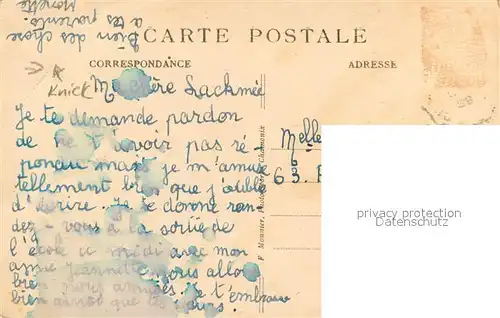 Bien des chose
a tes parents
Monette
CARTE POSTALE
CORRESPONDANCE
ADRESSE
Knick
Ma chère Lackmée
Je te demande pardon
de ne t'avoir pas ré-
pondu mais je m'amuse
tellement bien que j'oublie
d'écrire. Je te donne ren-
dez-vous à la sortie de
l'école à midi avec mon
amie Jeannette nous allons
bien nous
bien ainsi que tes sœurs. Je t'embrasse
Melle
63.
F. Monnier, Chamonix
privacy protection
Datenschutz